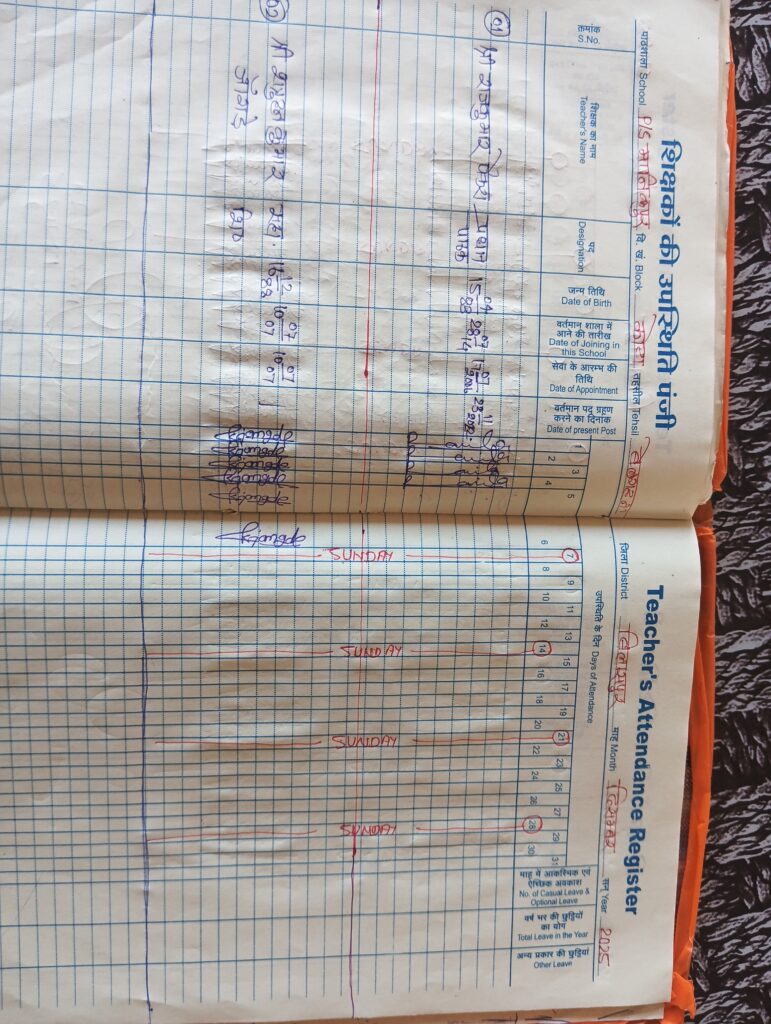 शिक्षकों की उपस्थिति पंजी
Teacher's Attendance Register
पाठशाला School P/S
वि. खं. Block कोटा तहसील Tehsil बेलगहना
जिला District बिलासपुर माह Month दिसम्बर सन् Year 2025
क्रमांक
S.No.
शिक्षक का नाम
Teacher's Name
पद
Designation
जन्म तिथि
Date of Birth
वर्तमान शाला में
आने की तारीख
Date of Joining in
this School
सेवा के आरम्भ की
तिथि
Date of Appointment
वर्तमान पद ग्रहण
करने का दिनांक
Date of present Post
उपस्थिति के दिन Days of Attendance
1 2 3 4 5 6 7 8 9 10 11 12 13 14 15 16 17 18 19 20 21 22 23 24 25 26 27 28 29 30 31
माह में आकस्मिक एवं
ऐच्छिक अवकाश
No. of Casual Leave &
Optional Leave
वर्ष भर की छुट्टियों
का योग
Total Leave in the Year
अन्य प्रकार की छुट्टियां
Other Leave
01 श्री राजकुमार प्रधान
पाठक
02 श्री कुमार सहा.
शिक्षक
SUNDAY
SUNDAY
SUNDAY
SUNDAY